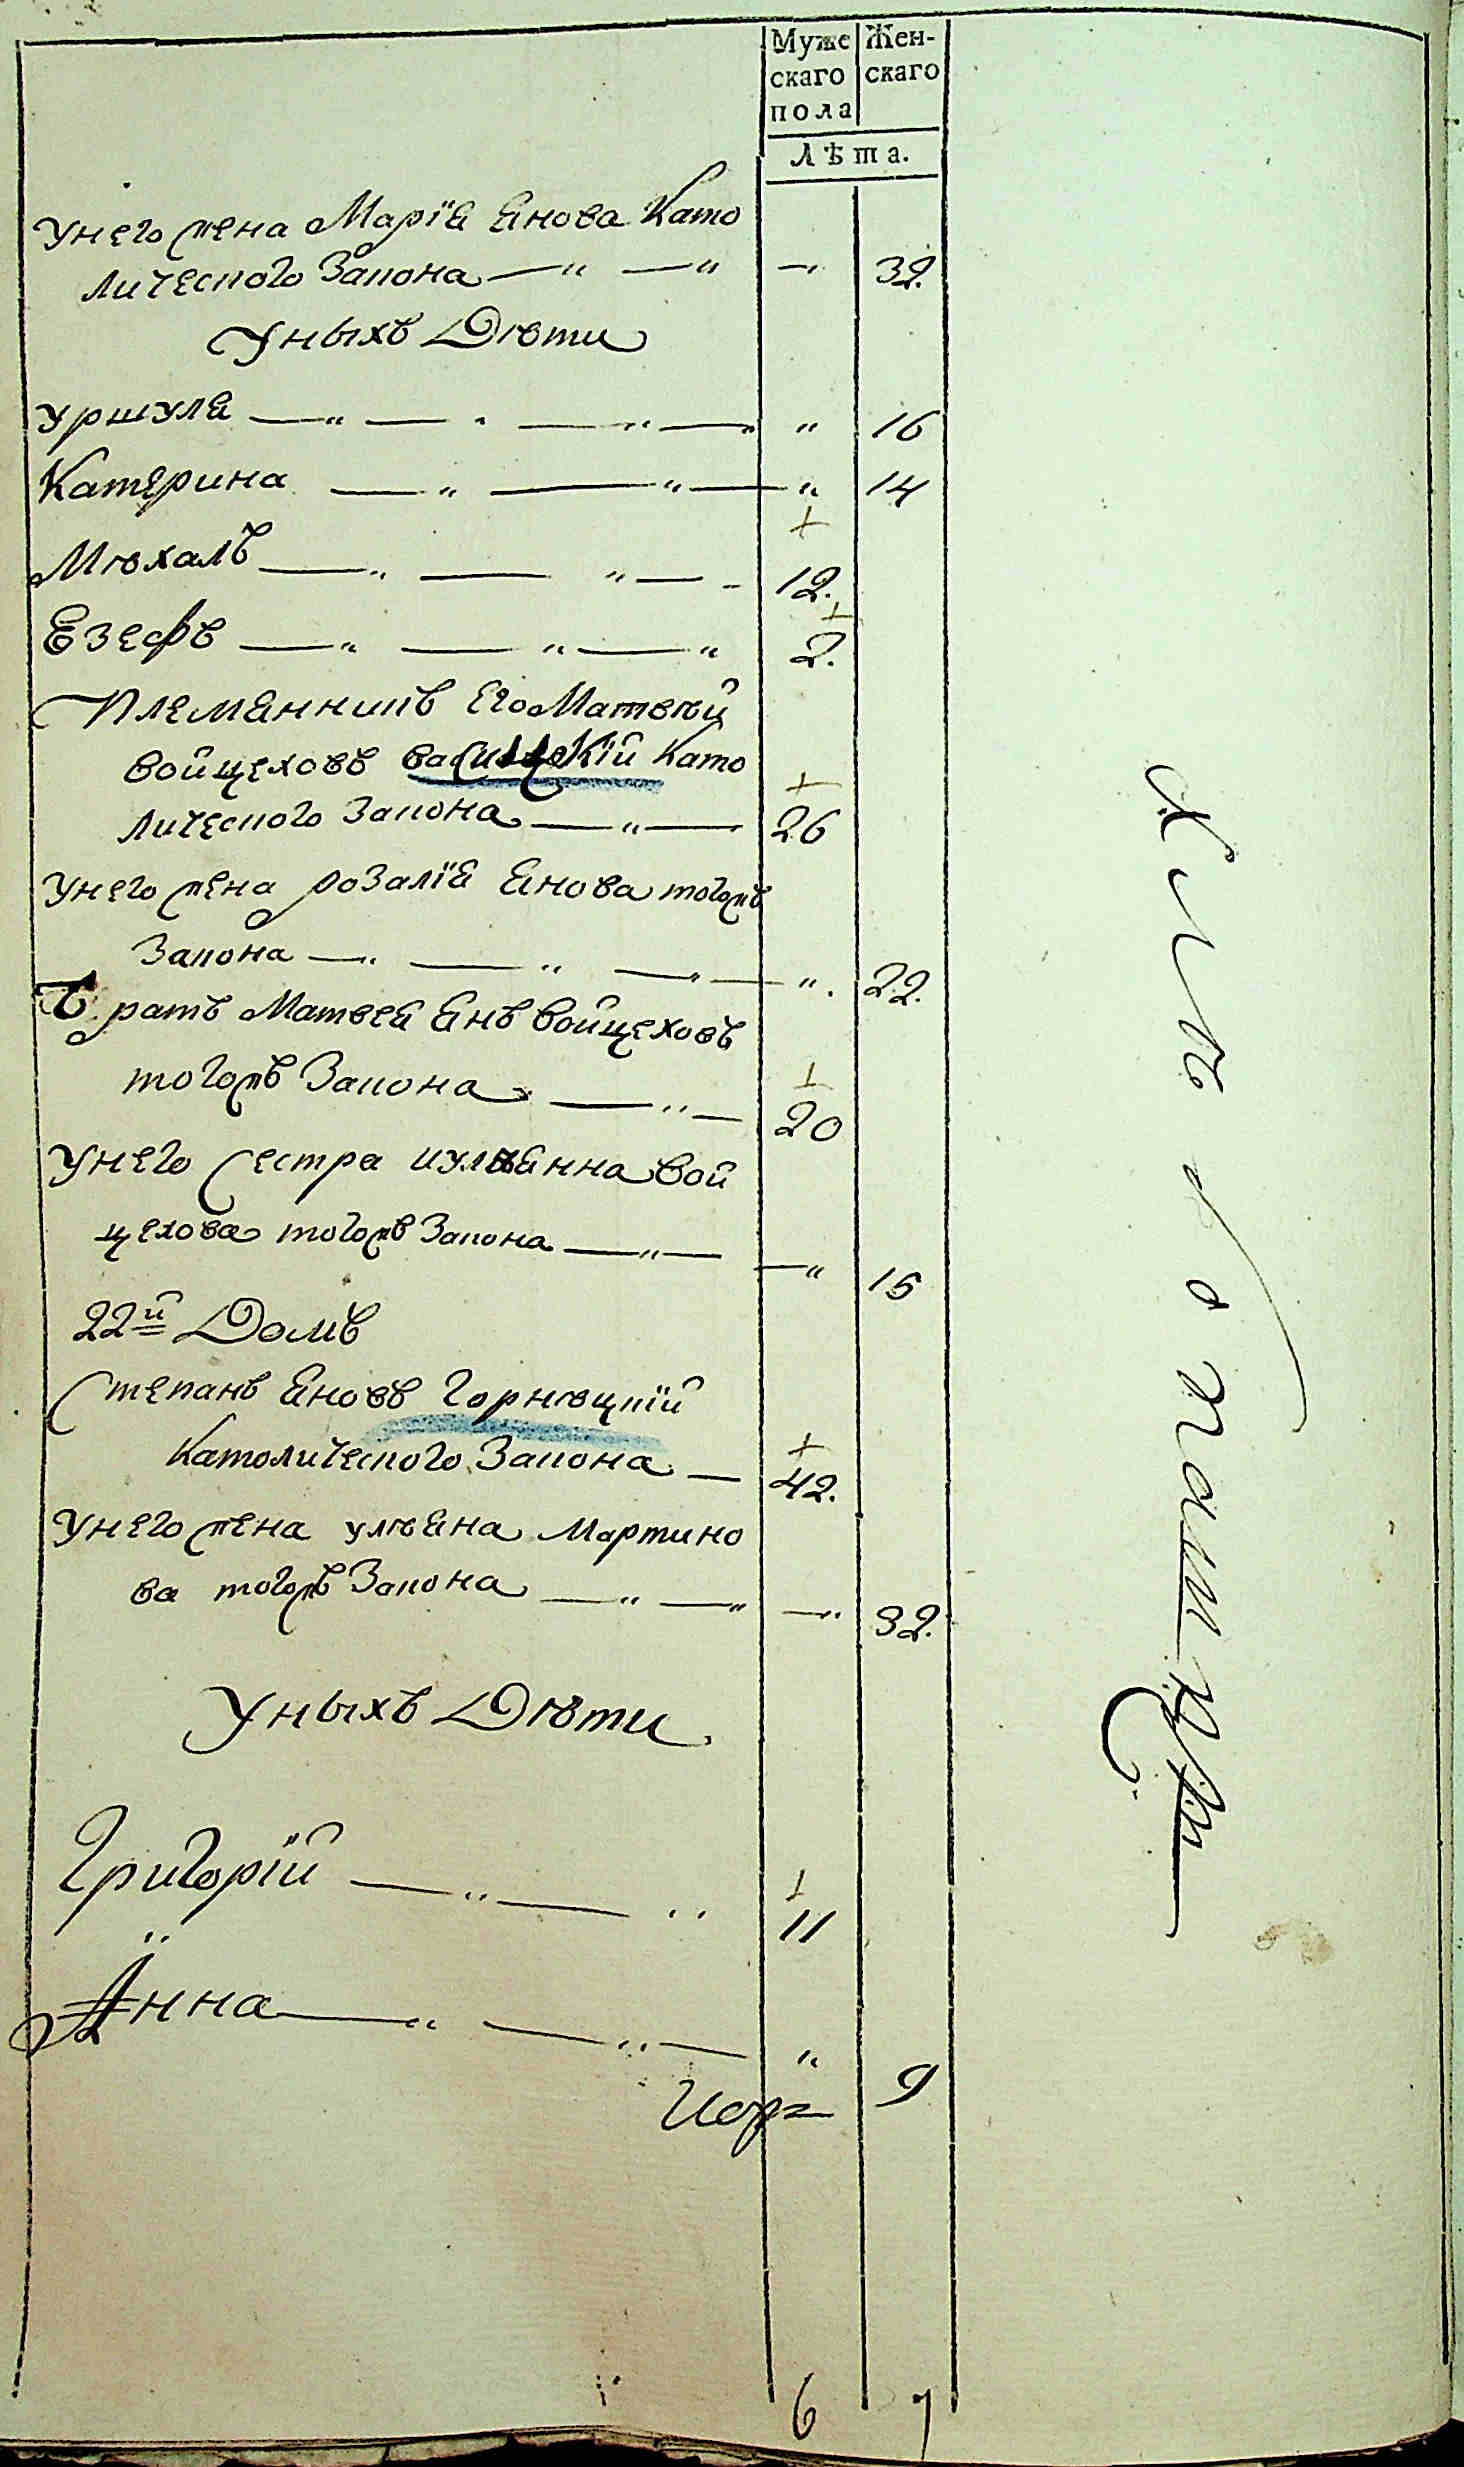 Муже
скаго
пола
Жен-
скаго
Лѣта.
У него жена Марїя Янова Като
лического Закона — " — " — 32.
У ныхъ Дѣти
Уршуля — " — " — " — " 16
Катерина — " — " — " 14
Мѣхалъ — " — " — - 12.
Езефъ — " — " — " 2.
Племянникъ Его Матвѣй
Войцеховъ Василевскїй Като
лического Закона — " — 26
У него жена Розалїя Янова тогожъ
Закона — " — " — " — ". 22.
Братъ Матвея Янъ Войцеховъ
тогожъ Закона — " — 20
У него Сестра Иулѣянна Вой
цехова тогожъ Закона — " — — " 15
22й Домъ
Степанъ Яновъ Горнѣцкїй
Католического Закона — 42.
У него жена Улѣяна Мартино
ва тогожъ Закона — " — " — " 32.
У ныхъ Дѣти
Григорїй — " — " 11
Анна — " — " — " 9
6 7